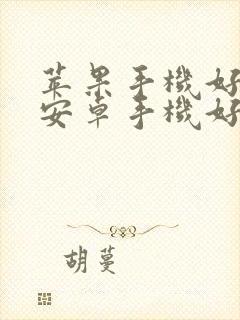 苹果手機好
安卓手機好
胡蔓